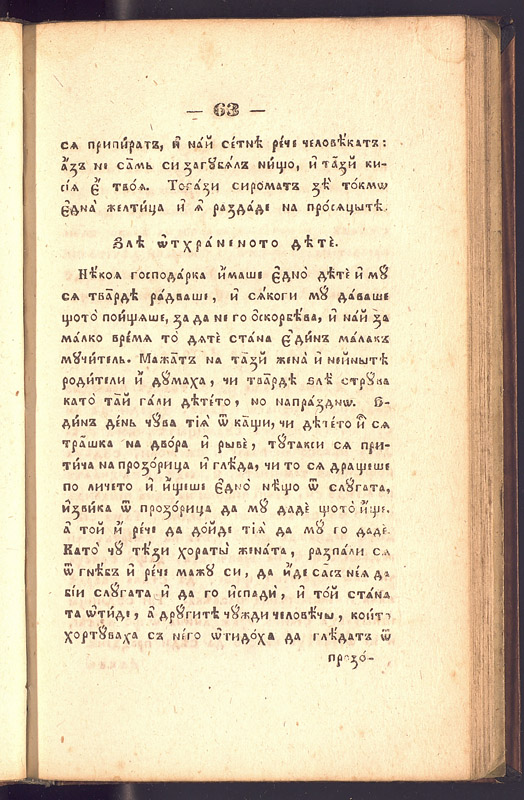 — 63 —
ся припи́ратъ, и҆ на́й се́тнѣ ре́че человѣ́катъ:
а҆́зъ не са́мь си загубя́лъ ни́що, и҆ та́зй ки-
сі́я є҆̀ твоя̀. Тога́зи сирома́тъ зѐ то́кмѡ
є҆дна̀ желти́ца и҆ я҆̀ разда́де на про́сяцытѣ.
Злѣ̀ ѿхра́неното дѣтѐ.
Нѣ́коя господа́рка и҆́маше є҆дно̀ дѣтѐ и҆ мꙋ̀
ся тва́рдѣ ра́дваше, и҆ ся́коги мꙋ̀ да́ваше
щото̀ пои́щяше, за да не го ѻ҆скорбѣ́ва, и҆ на́й за
ма́лко вре́мя то̀ дятѐ ста́на є҆ди́нъ ма́лакъ
мꙋчи́тель. Мажа́тъ на та́зй жена̀ и҆ не́йнытѣ
роди́тели и҆̀ дꙋ́маха, чи тва́рдѣ злѣ̀ стрꙋ́ва
като̀ та́й га́ли дѣте́то, но напра́зднѡ. Є҆-
ди́нъ де́нь чꙋ́ва тія̀ ѿ ка́щи, чи дѣте́то и҆̀ ся
тра́шка на дво́ра и҆ рывѐ, тꙋ́такси ся при-
ти́ча на прозо́рица и҆ глѣ́да, чи то̀ ся дра́щеше
по личе́то и҆ и҆́щеше є҆дно̀ нѣ́що ѿ слꙋга́та,
и҆зви́ка ѿ прозо́рица да мꙋ̀ дадѐ щото̀ и҆́ще.
а҆ то́й и҆̀ ре́че да до́йде тія̀ да мꙋ̀ го дадѐ.
Като̀ чꙋ̀ тѣ́зи хораты̀ жена́та, разпа́ли ся
ѿ гнѣ́въ и҆ ре́че мажꙋ̀ си, да и҆́де са́съ не́я да
бі́и слꙋга́та и҆ да го и҆спа́ди, и҆ то́й ста́на
та ѿи́де, а҆ дрꙋ́гитѣ чꙋ́жди человѣ́чы, кои́то
хортꙋ́ваха съ не́го ѿидо́ха да глѣ́датъ ѿ
прозо́-